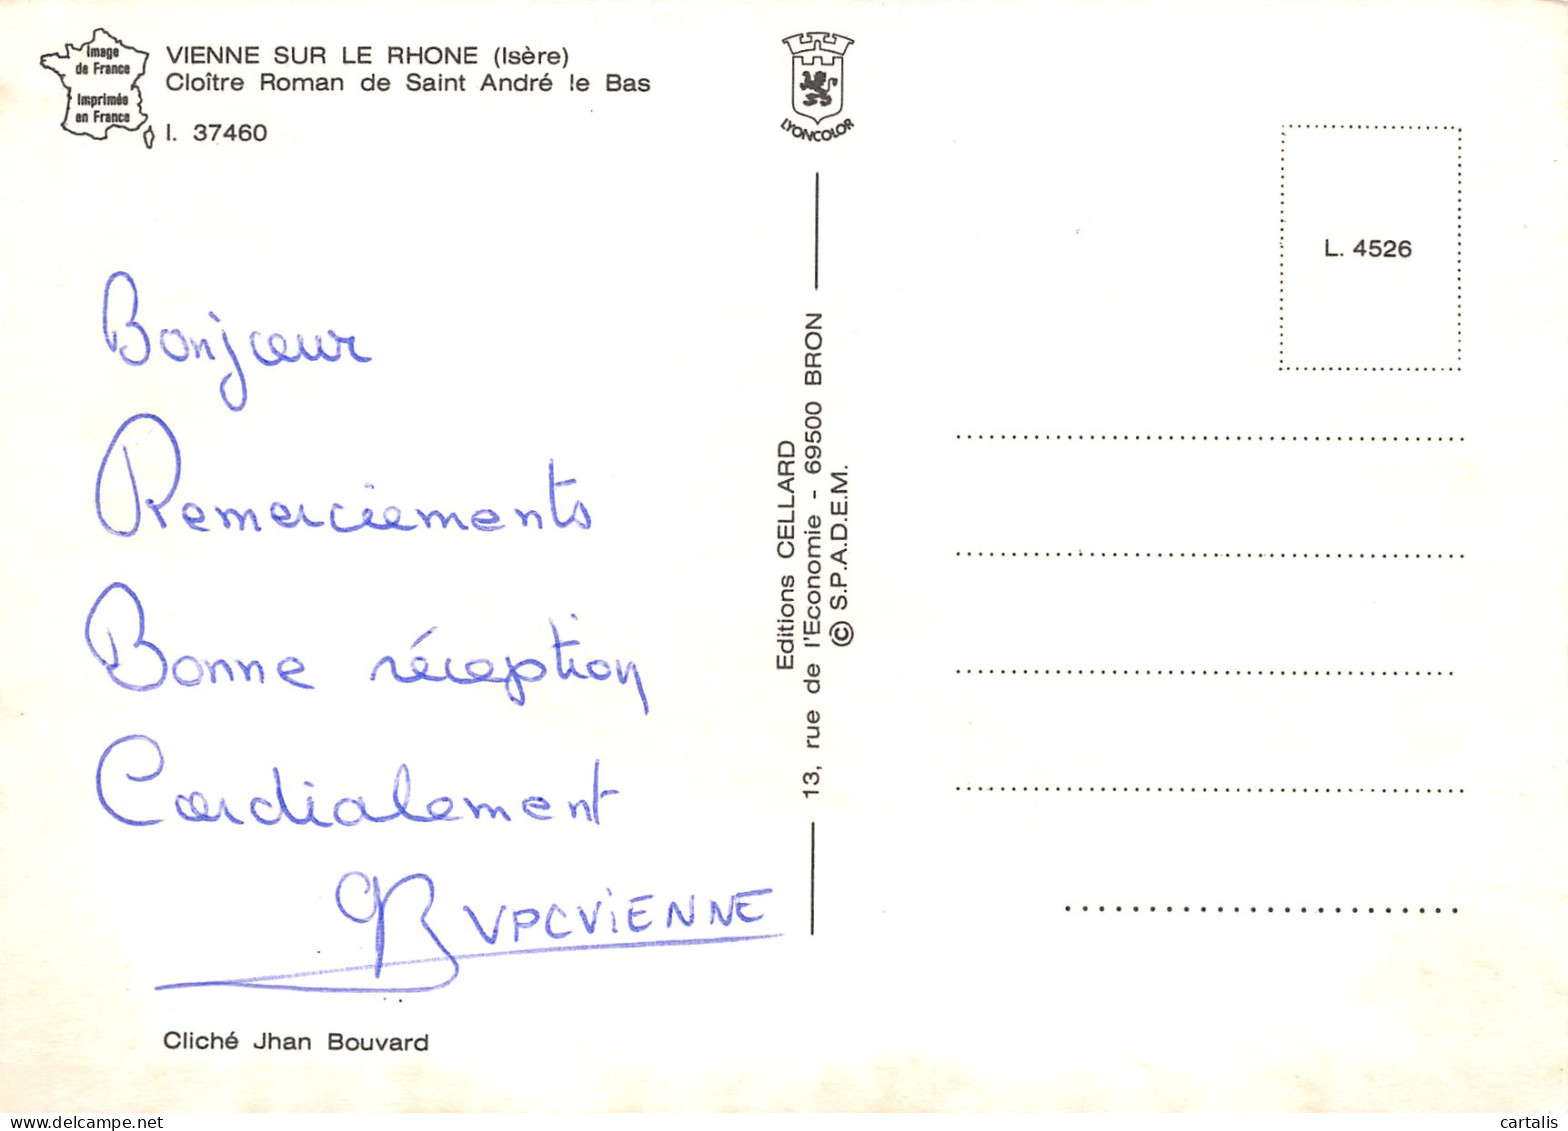 Image
de France
Imprimée
en France
VIENNE SUR LE RHONE (Isère)
Cloître Roman de Saint André le Bas
I. 37460
LYONCOLOR
L. 4526
Bonjour
Remerciements
Bonne réception
Cordialement
VPCVIENNE
Editions CELLARD
13, rue de l'Economie - 69500 BRON
© S.P.A.D.E.M.
Cliché Jhan Bouvard
www.delcampe.net
cartalis